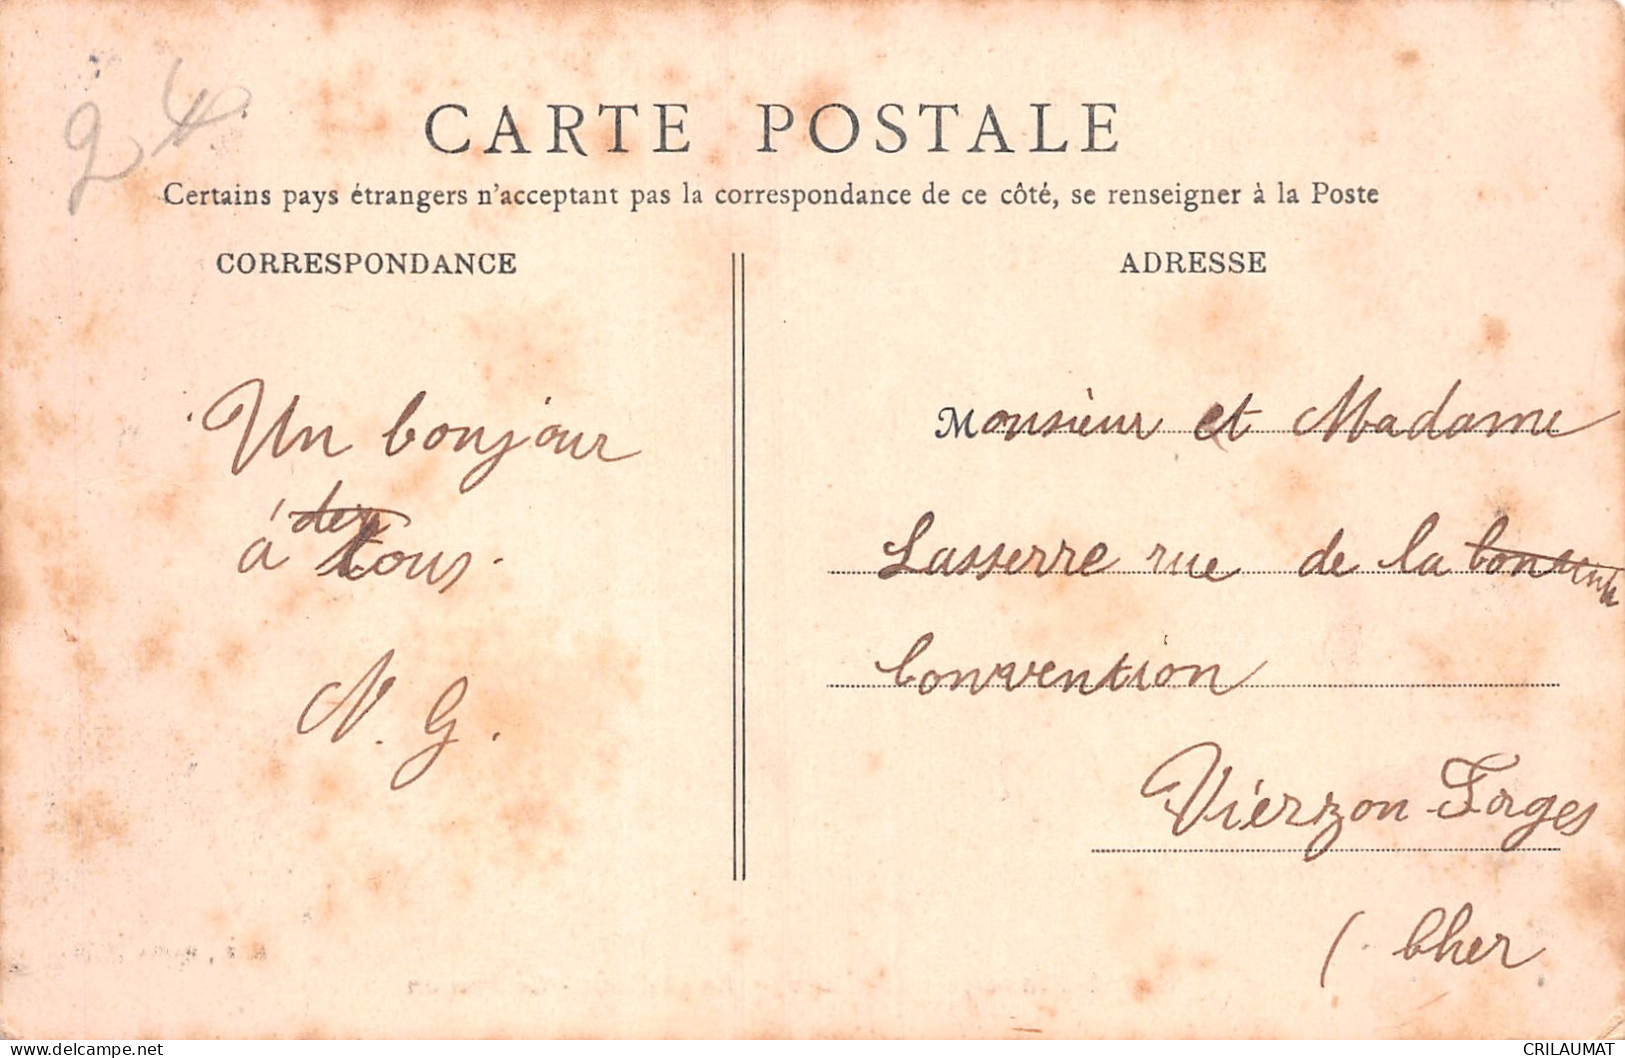 24
CARTE POSTALE
Certains pays étrangers n'acceptant pas la correspondance de ce côté, se renseigner à la Poste
CORRESPONDANCE
Un bonjour
à des tous.
N. G.
ADRESSE
Monsieur et Madame
Lasserre rue de la
Convention
Vierzon-Forges
( Cher
www.delcampe.net
CRILAUMAT